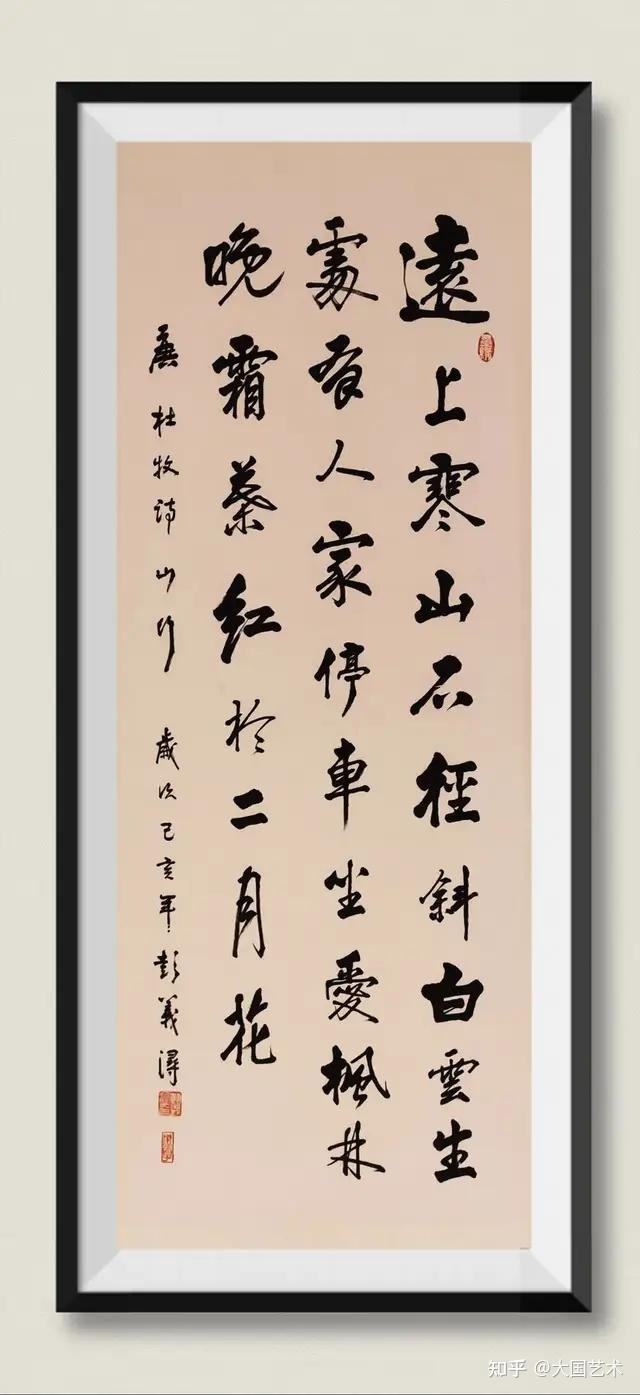 遠上寒山石徑斜白雲生
處有人家停車坐愛楓林
晚霜葉紅於二月花
唐杜牧詩山行 歲次己亥年彭義潯
知乎 @大国艺术